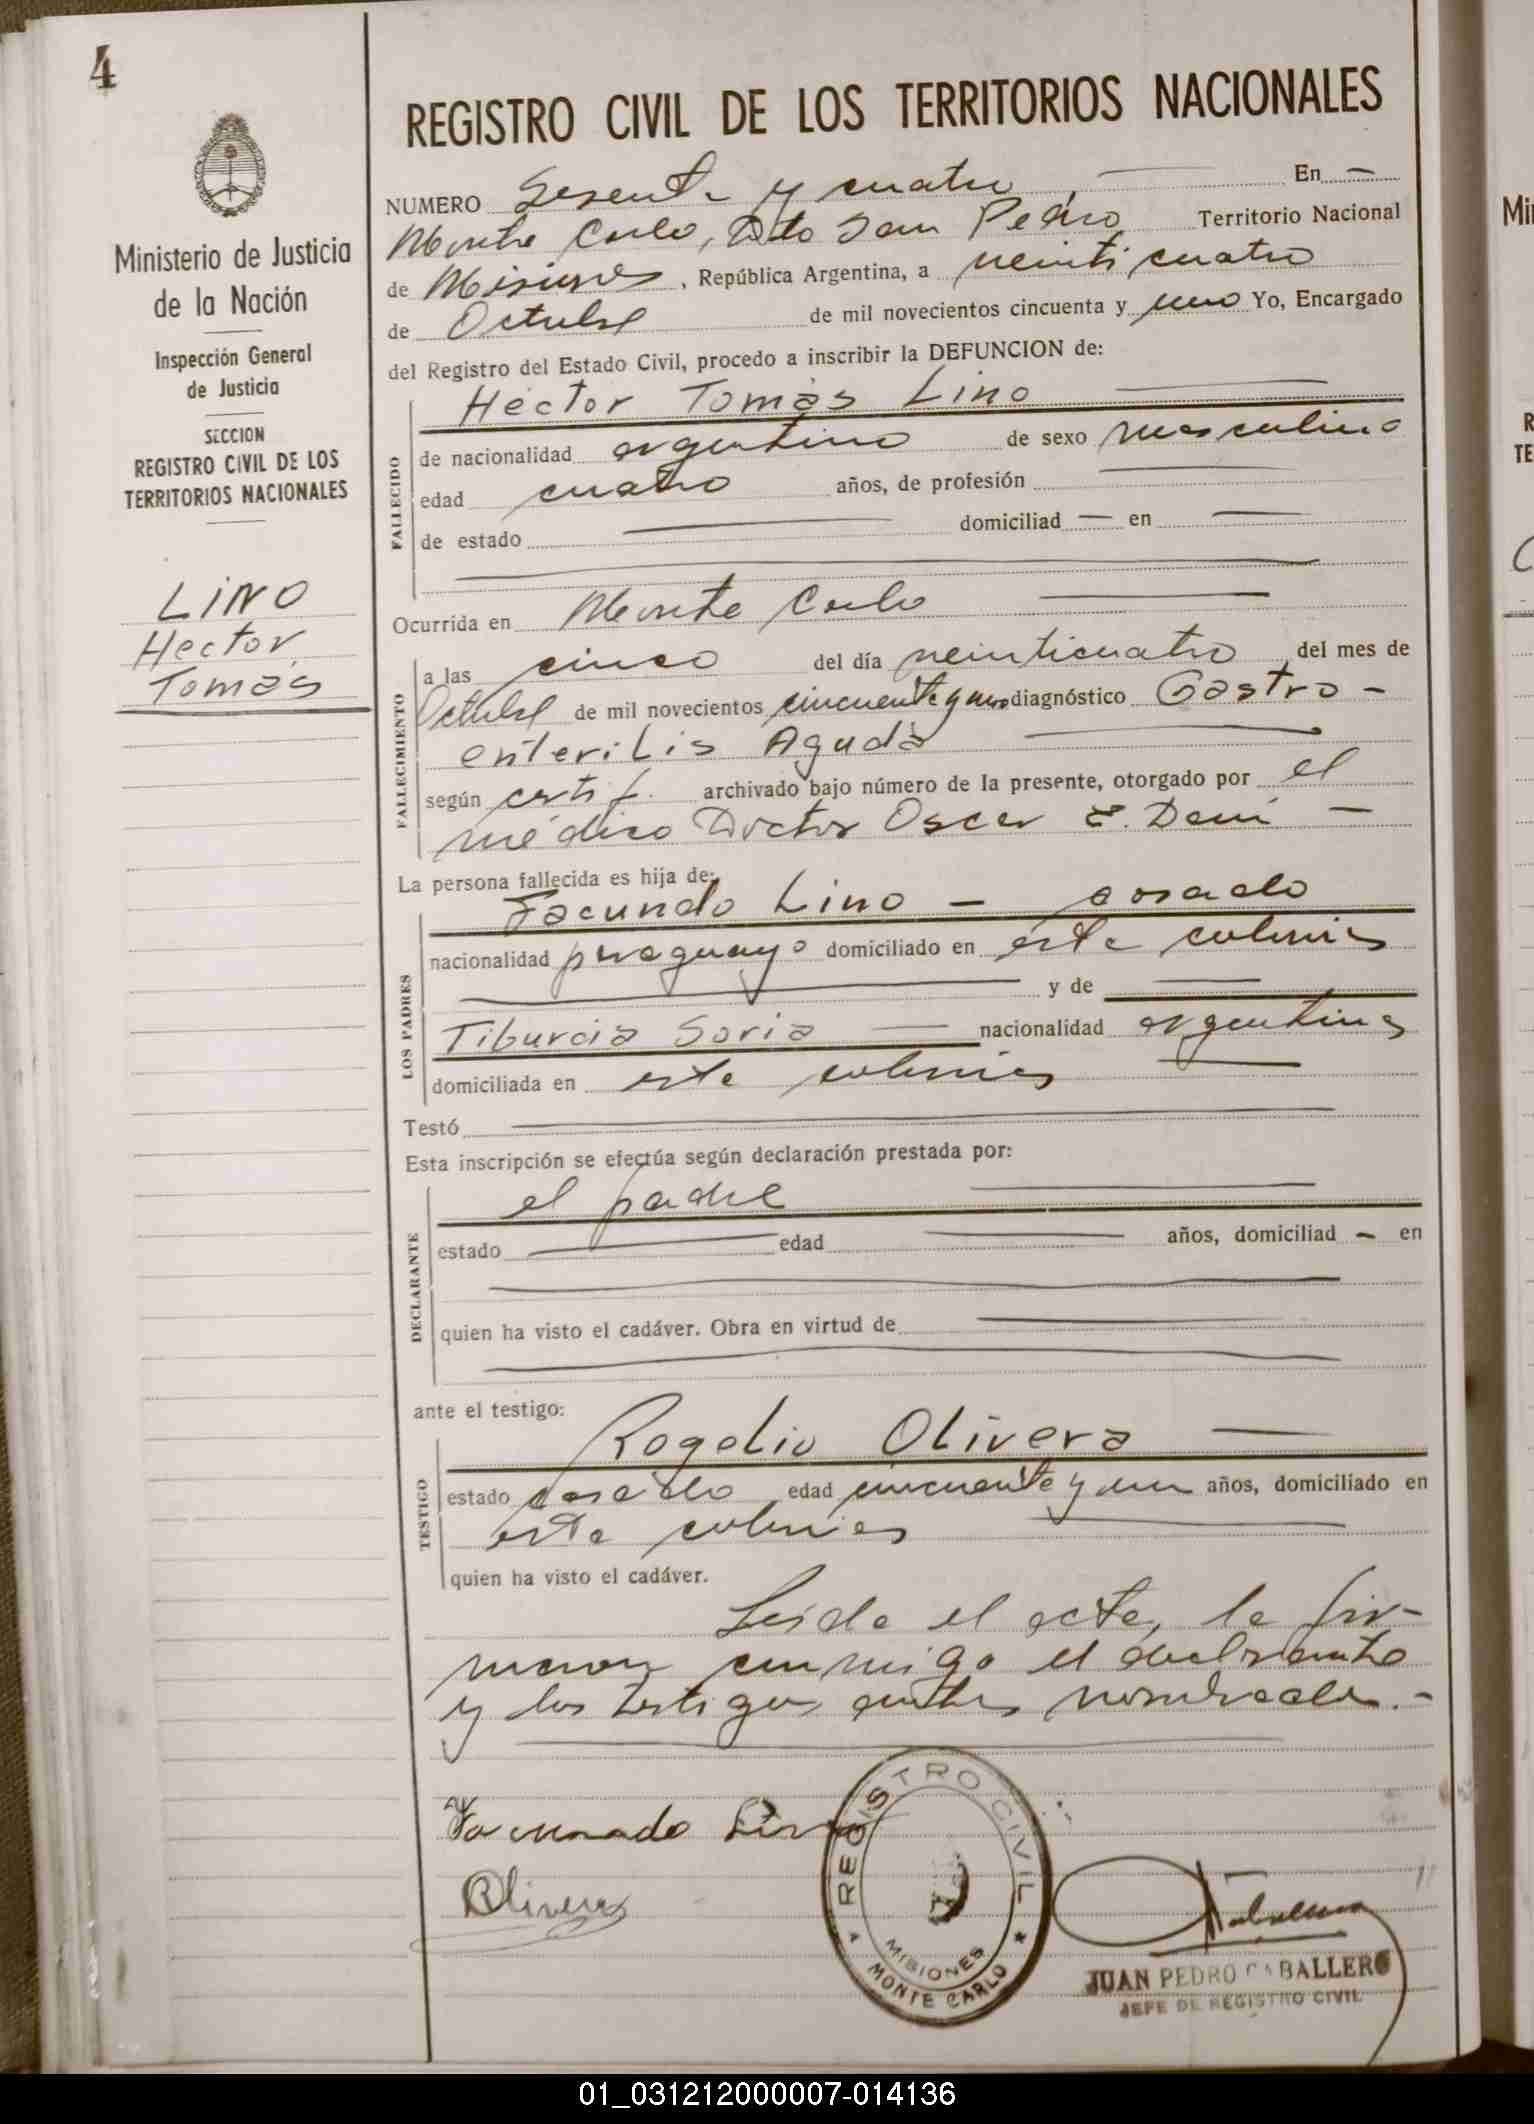 4
REGISTRO CIVIL DE LOS TERRITORIOS NACIONALES
Ministerio de Justicia
de la Nación
Inspección General
de Justicia
SECCION
REGISTRO CIVIL DE LOS
TERRITORIOS NACIONALES
LINO
Hector
Tomás
NUMERO Sesenta y cuatro, — En —
Monte Carlo, Dto San Pedro Territorio Nacional
de Misiones, República Argentina, a veinticuatro
de Octubre de mil novecientos cincuenta y uno Yo, Encargado
del Registro del Estado Civil, procedo a inscribir la DEFUNCION de:
Héctor Tomás Lino —
FALLECIDO
de nacionalidad argentino de sexo masculino
edad cuatro años, de profesión —
de estado — domiciliad — en —
Ocurrida en Monte Carlo —
FALLECIMIENTO
a las cinco del día veinticuatro del mes de
Octubre de mil novecientos cincuenta y uno diagnóstico Gastro-
enteritis Aguda —
según certif. archivado bajo número de la presente, otorgado por el
médico Doctor Oscar E. —
La persona fallecida es hija de:
Facundo Lino — casado
LOS PADRES
nacionalidad paraguayo domiciliado en esta colonia
— y de —
Tiburcia Soria — nacionalidad argentina
domiciliada en esta colonia —
Testó —
Esta inscripción se efectúa según declaración prestada por:
el padre —
DECLARANTE
estado — edad — años, domiciliad — en
—
quien ha visto el cadáver. Obra en virtud de —
—
ante el testigo:
Rogelio Olivera —
TESTIGO
estado casado edad cincuenta y un años, domiciliado en
esta colonia —
quien ha visto el cadáver.
Leida el acta, la fir-
maron conmigo el declarante
y los testigos antes nombrados.-
Facundo Lino
Olivera
REGISTRO CIVIL
MISIONES
MONTE CARLO
JUAN PEDRO CABALLERO
JEFE DE REGISTRO CIVIL
01_031212000007-014136